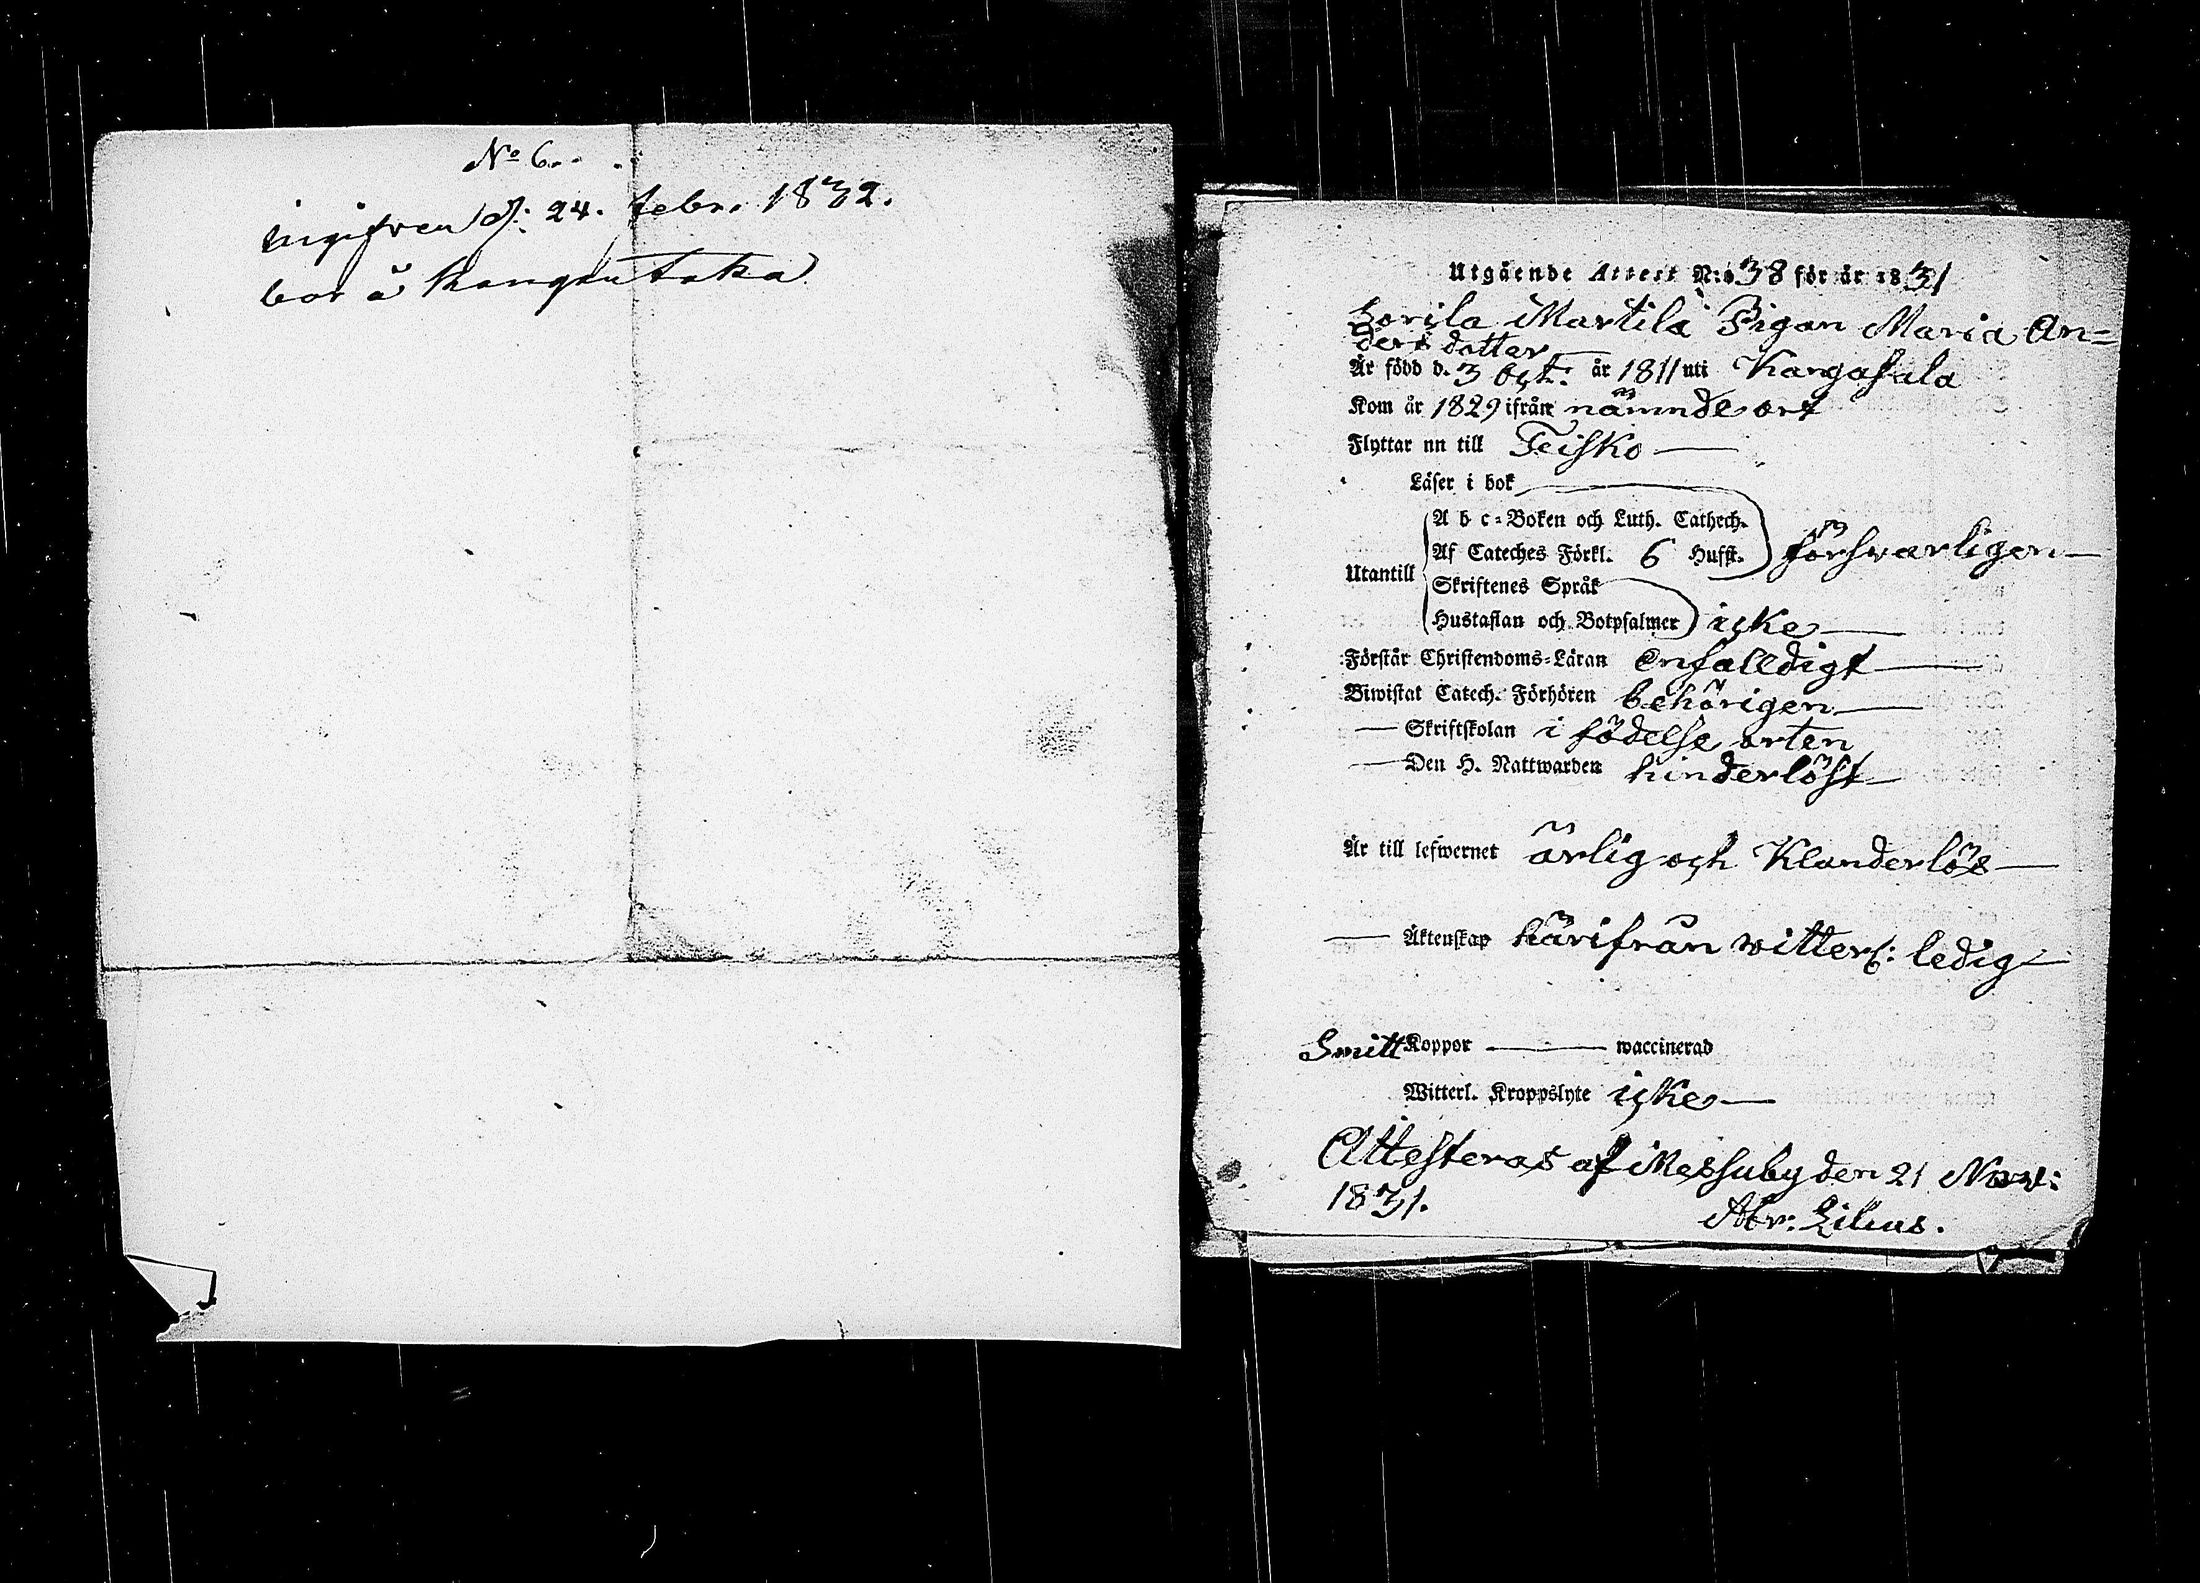 No 6.
ingifven d: 24. febr. 1832.
bor å Kangantaka
Utgående Attest N:o 38 för år 1831
Sorila Martila Pigan Maria An=
ders dotter
Är född d. 3 Oct. år 1811 uti Kangasala
Kom år 1829 ifrån nämnde ort
Flyttar nu till Teisko
Läser i bok
A b c=Boken och Luth. Cathech.
Af Cateches Förkl. 6 Hufst. försvarligen
Utantill
Skriftenes Språk
Hustaflan och Botpsalmer icke
Förstår Christendoms=Läran enfalldigt
Biwistat Catech. Förhören behörigen
Skriftskolan i födelse orten
Den H. Nattwarden hinderlöst
Är till lefwernet ärlig och Klanderlös
Äktenskap härifrån witterl: ledig
Smitt Koppor waccinerad
Witterl. Kroppslyte icke
Attesteras af Messuby den 21 Nov:
1831.
Abr: Lilius.